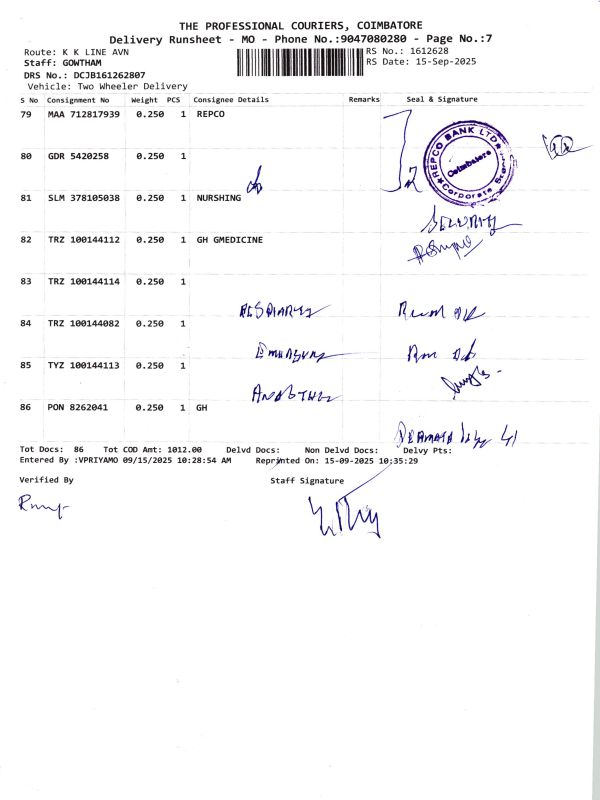 THE PROFESSIONAL COURIERS, COIMBATORE
Delivery Runsheet - MO - Phone No.:9047080280 - Page No.:7
Route: K K LINE AVN
RS No.: 1612628
Staff: GOWTHAM
RS Date: 15-Sep-2025
DRS No.: DCJB161262807
Vehicle: Two Wheeler Delivery
S No Consignment No Weight PCS Consignee Details Remarks Seal & Signature
79 MAA 712817939 0.250 1 REPCO
REPCO BANK LTD
Coimbatore
Corporate
80 GDR 5420258 0.250 1
81 SLM 378105038 0.250 1 NURSHING
82 TRZ 100144112 0.250 1 GH GMEDICINE
83 TRZ 100144114 0.250 1
84 TRZ 100144082 0.250 1
85 TYZ 100144113 0.250 1
86 PON 8262041 0.250 1 GH
Tot Docs: 86 Tot COD Amt: 1012.00 Delvd Docs: Non Delvd Docs: Delvy Pts:
Entered By :VPRIYAMO 09/15/2025 10:28:54 AM Reprinted On: 15-09-2025 10:35:29
Verified By Staff Signature